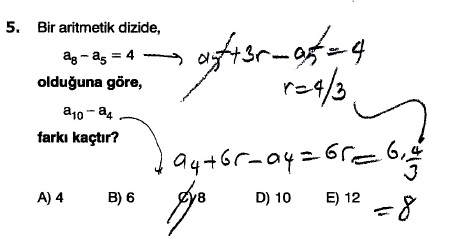 5. Bir aritmetik dizide,
a₈ – a₅ = 4 → a₅ + 3r – a₅ = 4
olduğuna göre, r = 4/3
a₁₀ – a₄
farkı kaçtır?
a₄ + 6r – a₄ = 6r = 6 · 4/3
A) 4 B) 6 C) 8 D) 10 E) 12
= 8